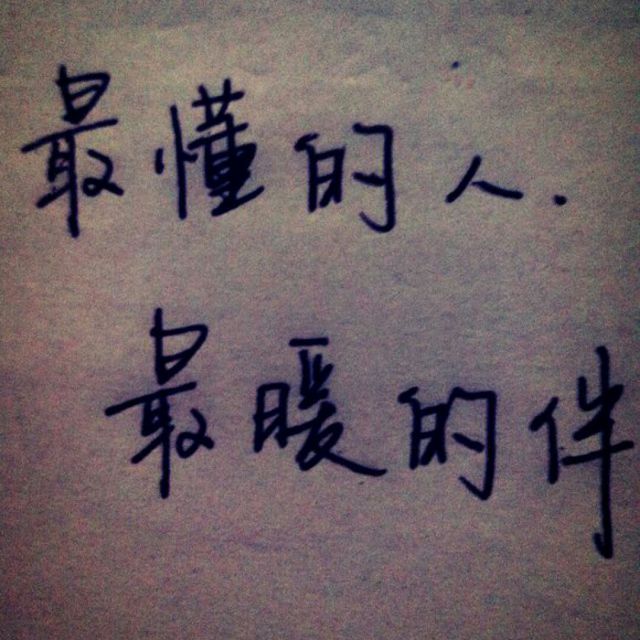 最懂的人.
最暖的伴